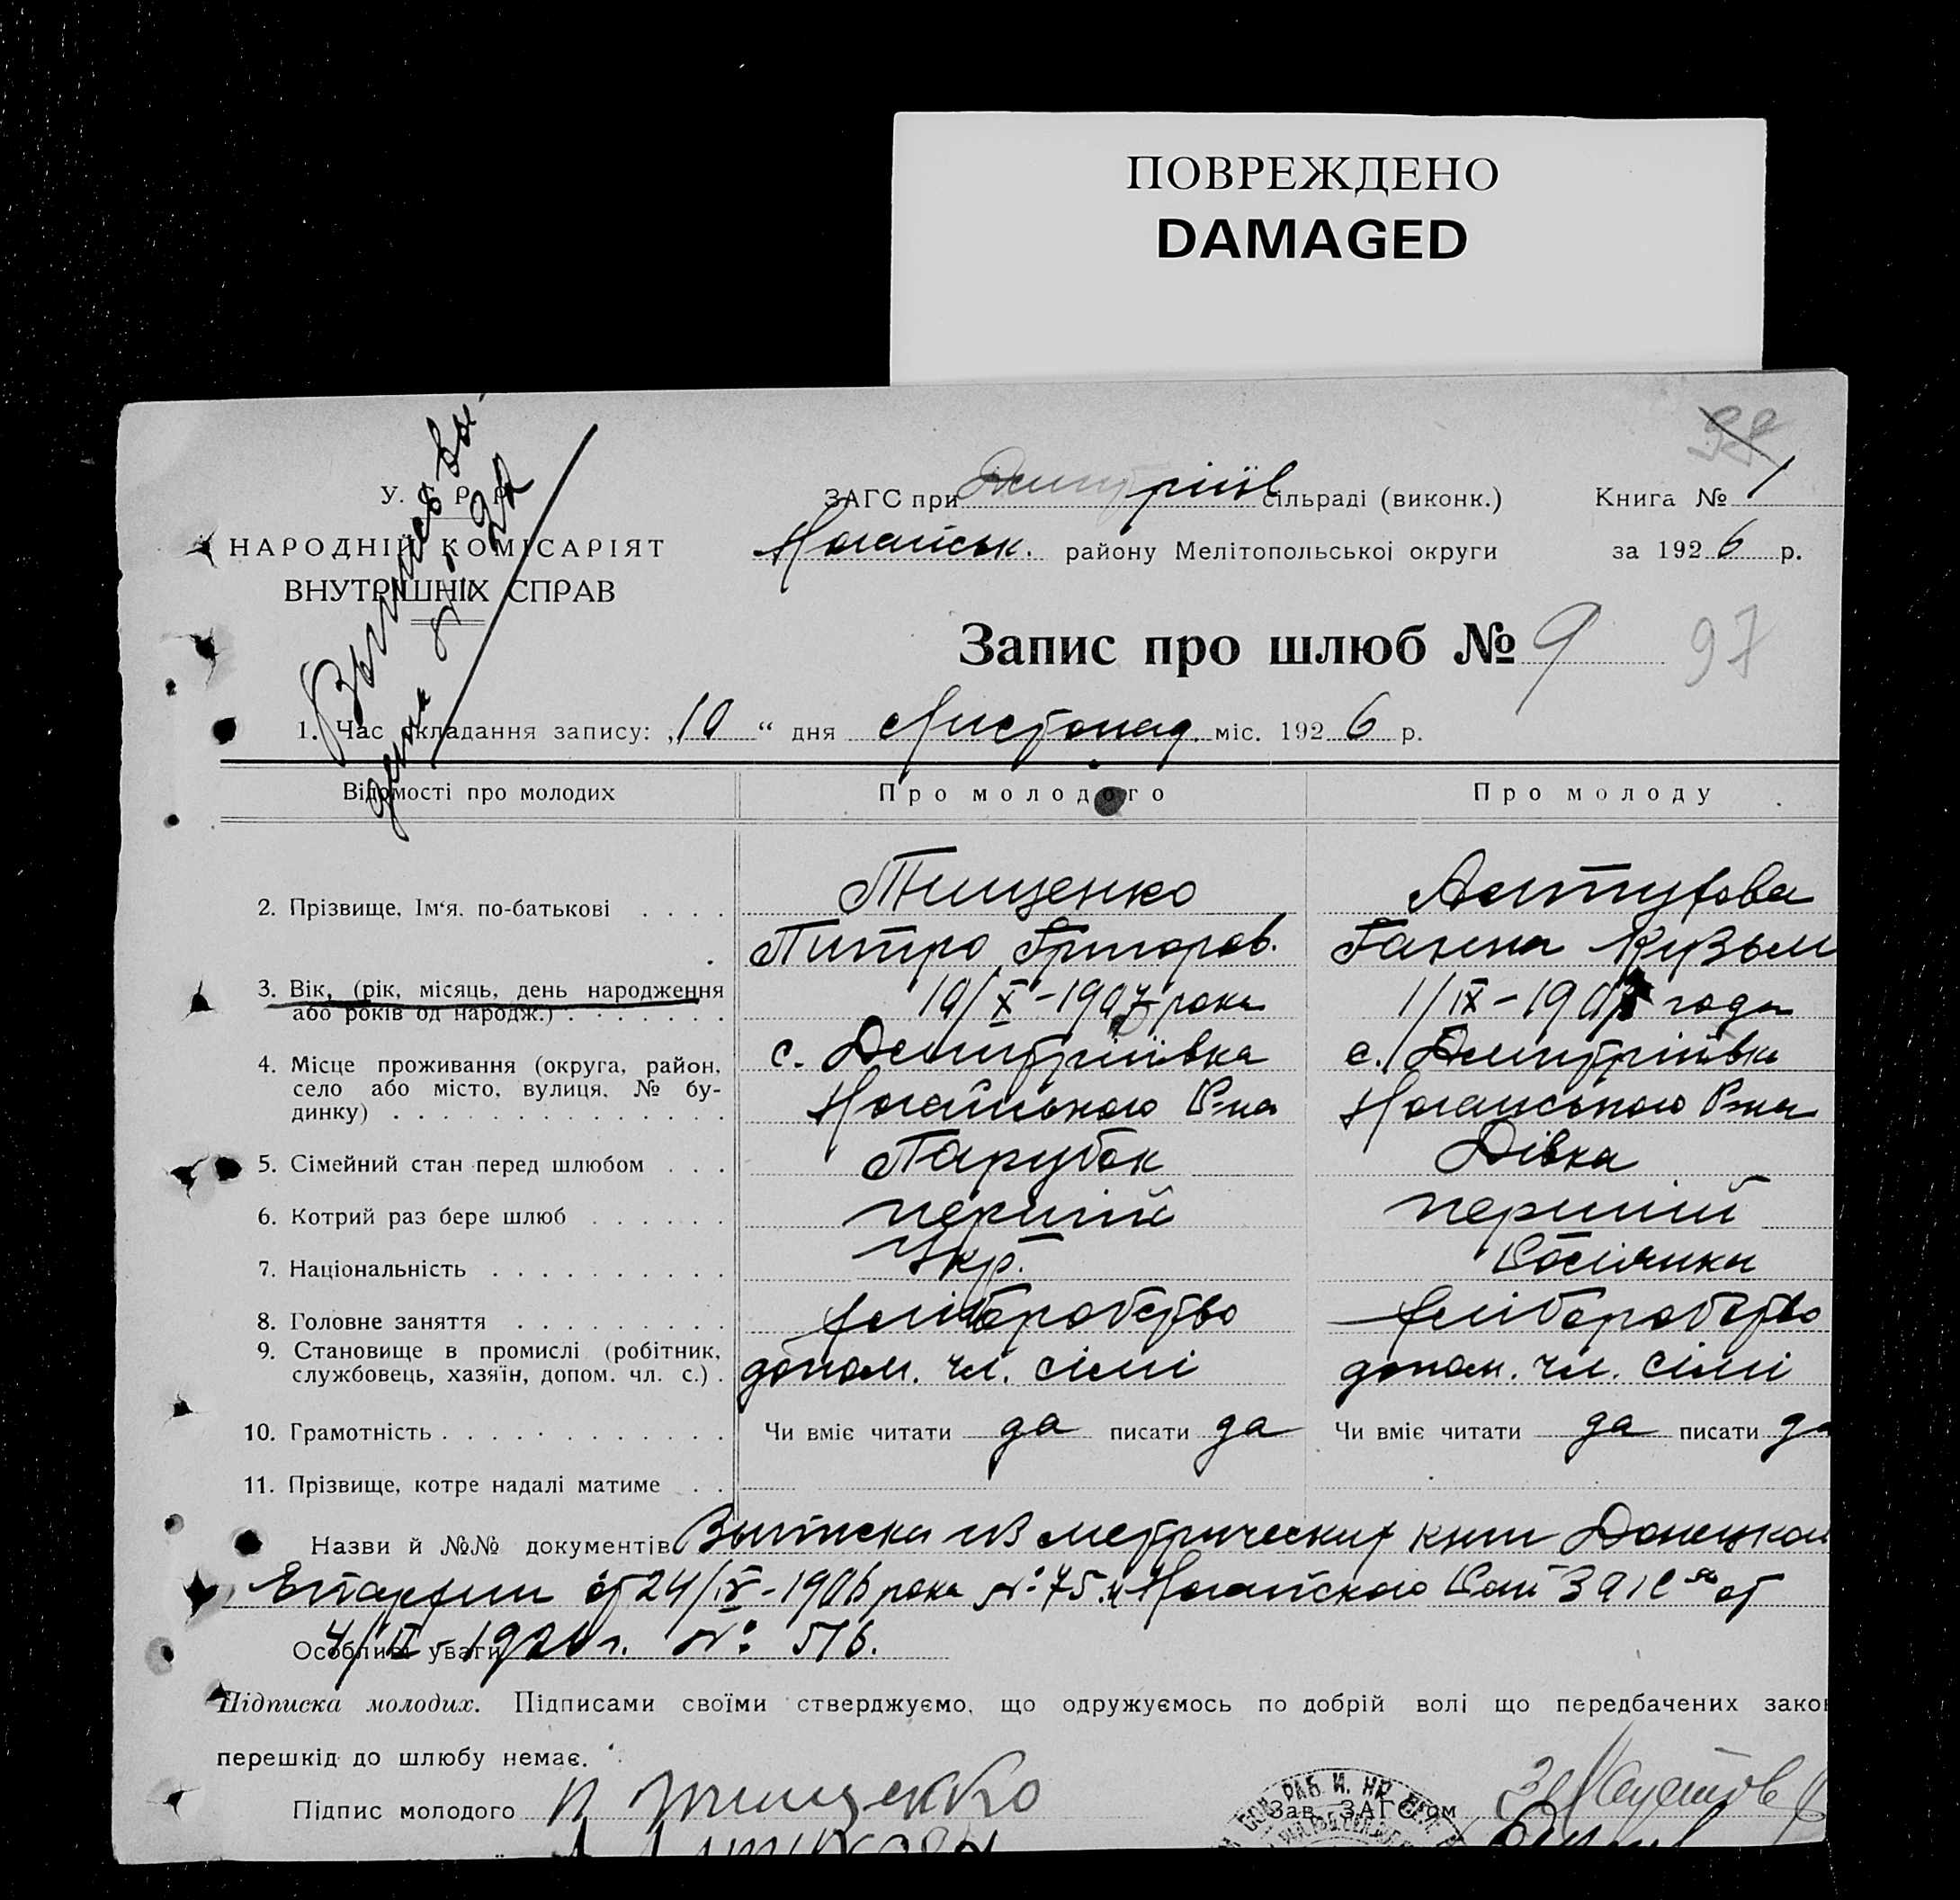 ПОВРЕЖДЕНО
DAMAGED
98
У. С. Р. Р.
НАРОДНІЙ КОМІСАРІЯТ
ВНУТРІШНІХ СПРАВ
ЗАГС при Дмитріїв сільраді (виконк.)
Книга № 1
Ногайськ. району Мелітопольської округи
за 1926 р.
Запис про шлюб № 9
97
1. Час складання запису: „10“ дня Листопад. міс. 1926 р.
Відомості про молодих
Про молодого
Про молоду
2. Прізвище, Ім‘я. по-батькові
Тищенко
Питро Григоров.
Ганна Кузьм
3. Вік, (рік, місяць, день народження
або років од народж.)
10/X-1907 рока
1/IX-190 года
4. Місце проживання (округа, район,
село або місто, вулиця, № бу-
динку)
с. Дмитріївка
Ногайського Р-на
с. Дмитріївка
Ногайського Р-на
5. Сімейний стан перед шлюбом
Парубок
Дівка
6. Котрий раз бере шлюб
перший
перший
7. Національність
Укр.
Росіянка
8. Головне заняття
хліборобство
хліборобство
9. Становище в промислі (робітник,
службовець, хазяїн, допом. чл. с.)
допом. чл. сімі
допом. чл. сімі
10. Грамотність
Чи вміє читати да писати да
Чи вміє читати да писати да
11. Прізвище, котре надалі матиме
Назви й №№ документів Выписка из метрических книг Донецкой
Епархии от 24/IV-1906 рока №: 75. и Ногайского Рай ЗАГСа от
Особливі уваги 4/ 192 г. №: 516.
Підписка молодих. Підписами своїми стверджуємо, що одружуємось по добрій волі що передбачених зако
перешкід до шлюбу немає.
Підпис молодого П Тищенко
Зав. ЗАГС'ом